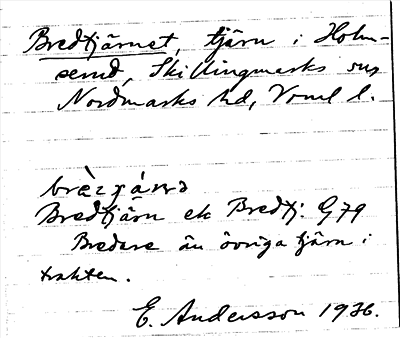 Bredtjärnet, tjärn i Holm-
semd, Skillingmarks sn,
Nordmarks hd, Vrml l.
Bredtjärn ek Bredtj: G 79
Bredare än övriga tjärn i
trakten.
E. Andersson 1936.